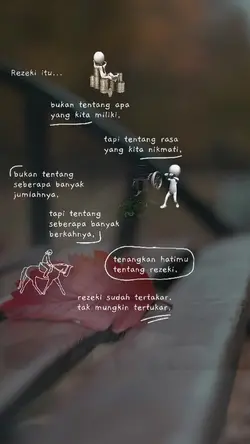 Rezeki itu...
bukan tentang apa
yang kita miliki,
tapi tentang rasa
yang kita nikmati,
bukan tentang
seberapa banyak
jumlahnya,
tapi tentang
seberapa banyak
berkahnya,
tenangkan hatimu
tentang rezeki.
rezeki sudah tertakar,
tak mungkin tertukar.